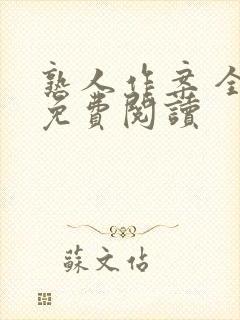 熟人作案全
免費閱讀
蘇文佑